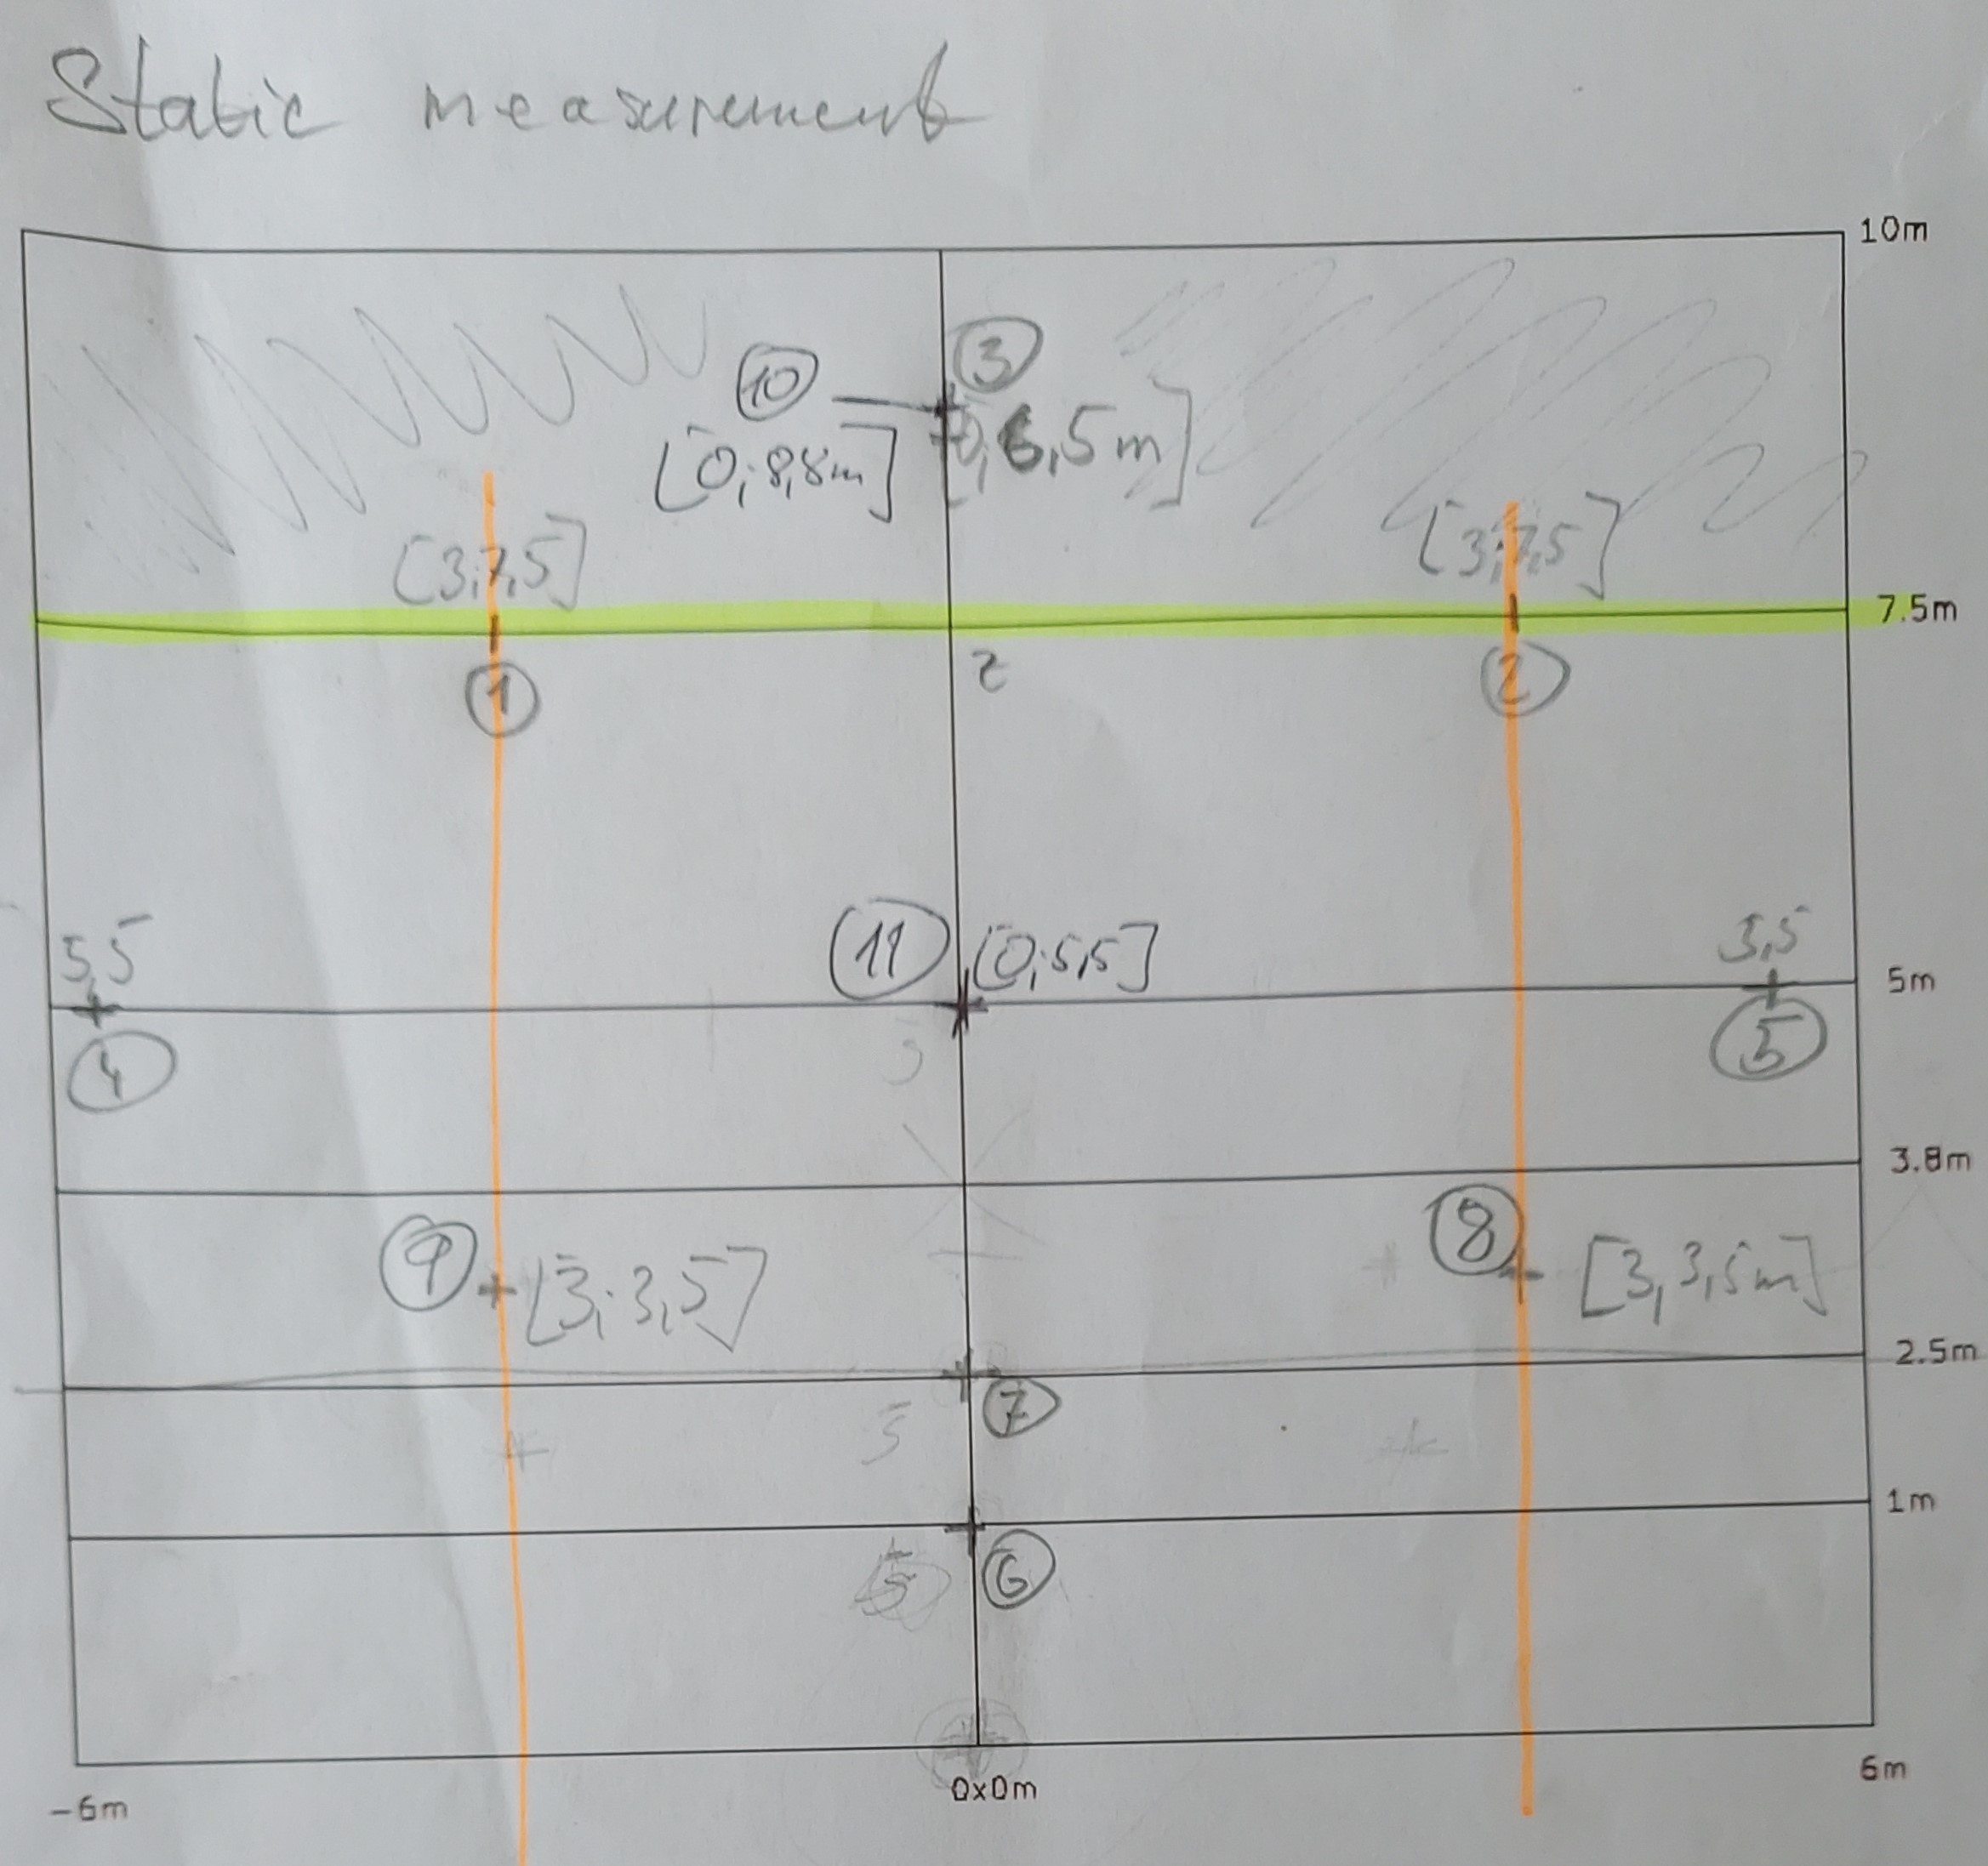 Static measurement
10m
3
10
[0,6,5m]
[0;8,8m]
[3;7,5]
[3;7,5]
7.5m
1
2
2
11
[0;5,5]
5,5
5,5
5m
4
5
5
3.8m
9
[3;3,5]
8
[3,3,5m]
2.5m
7
5
1m
5
6
-6m
0x0m
6m